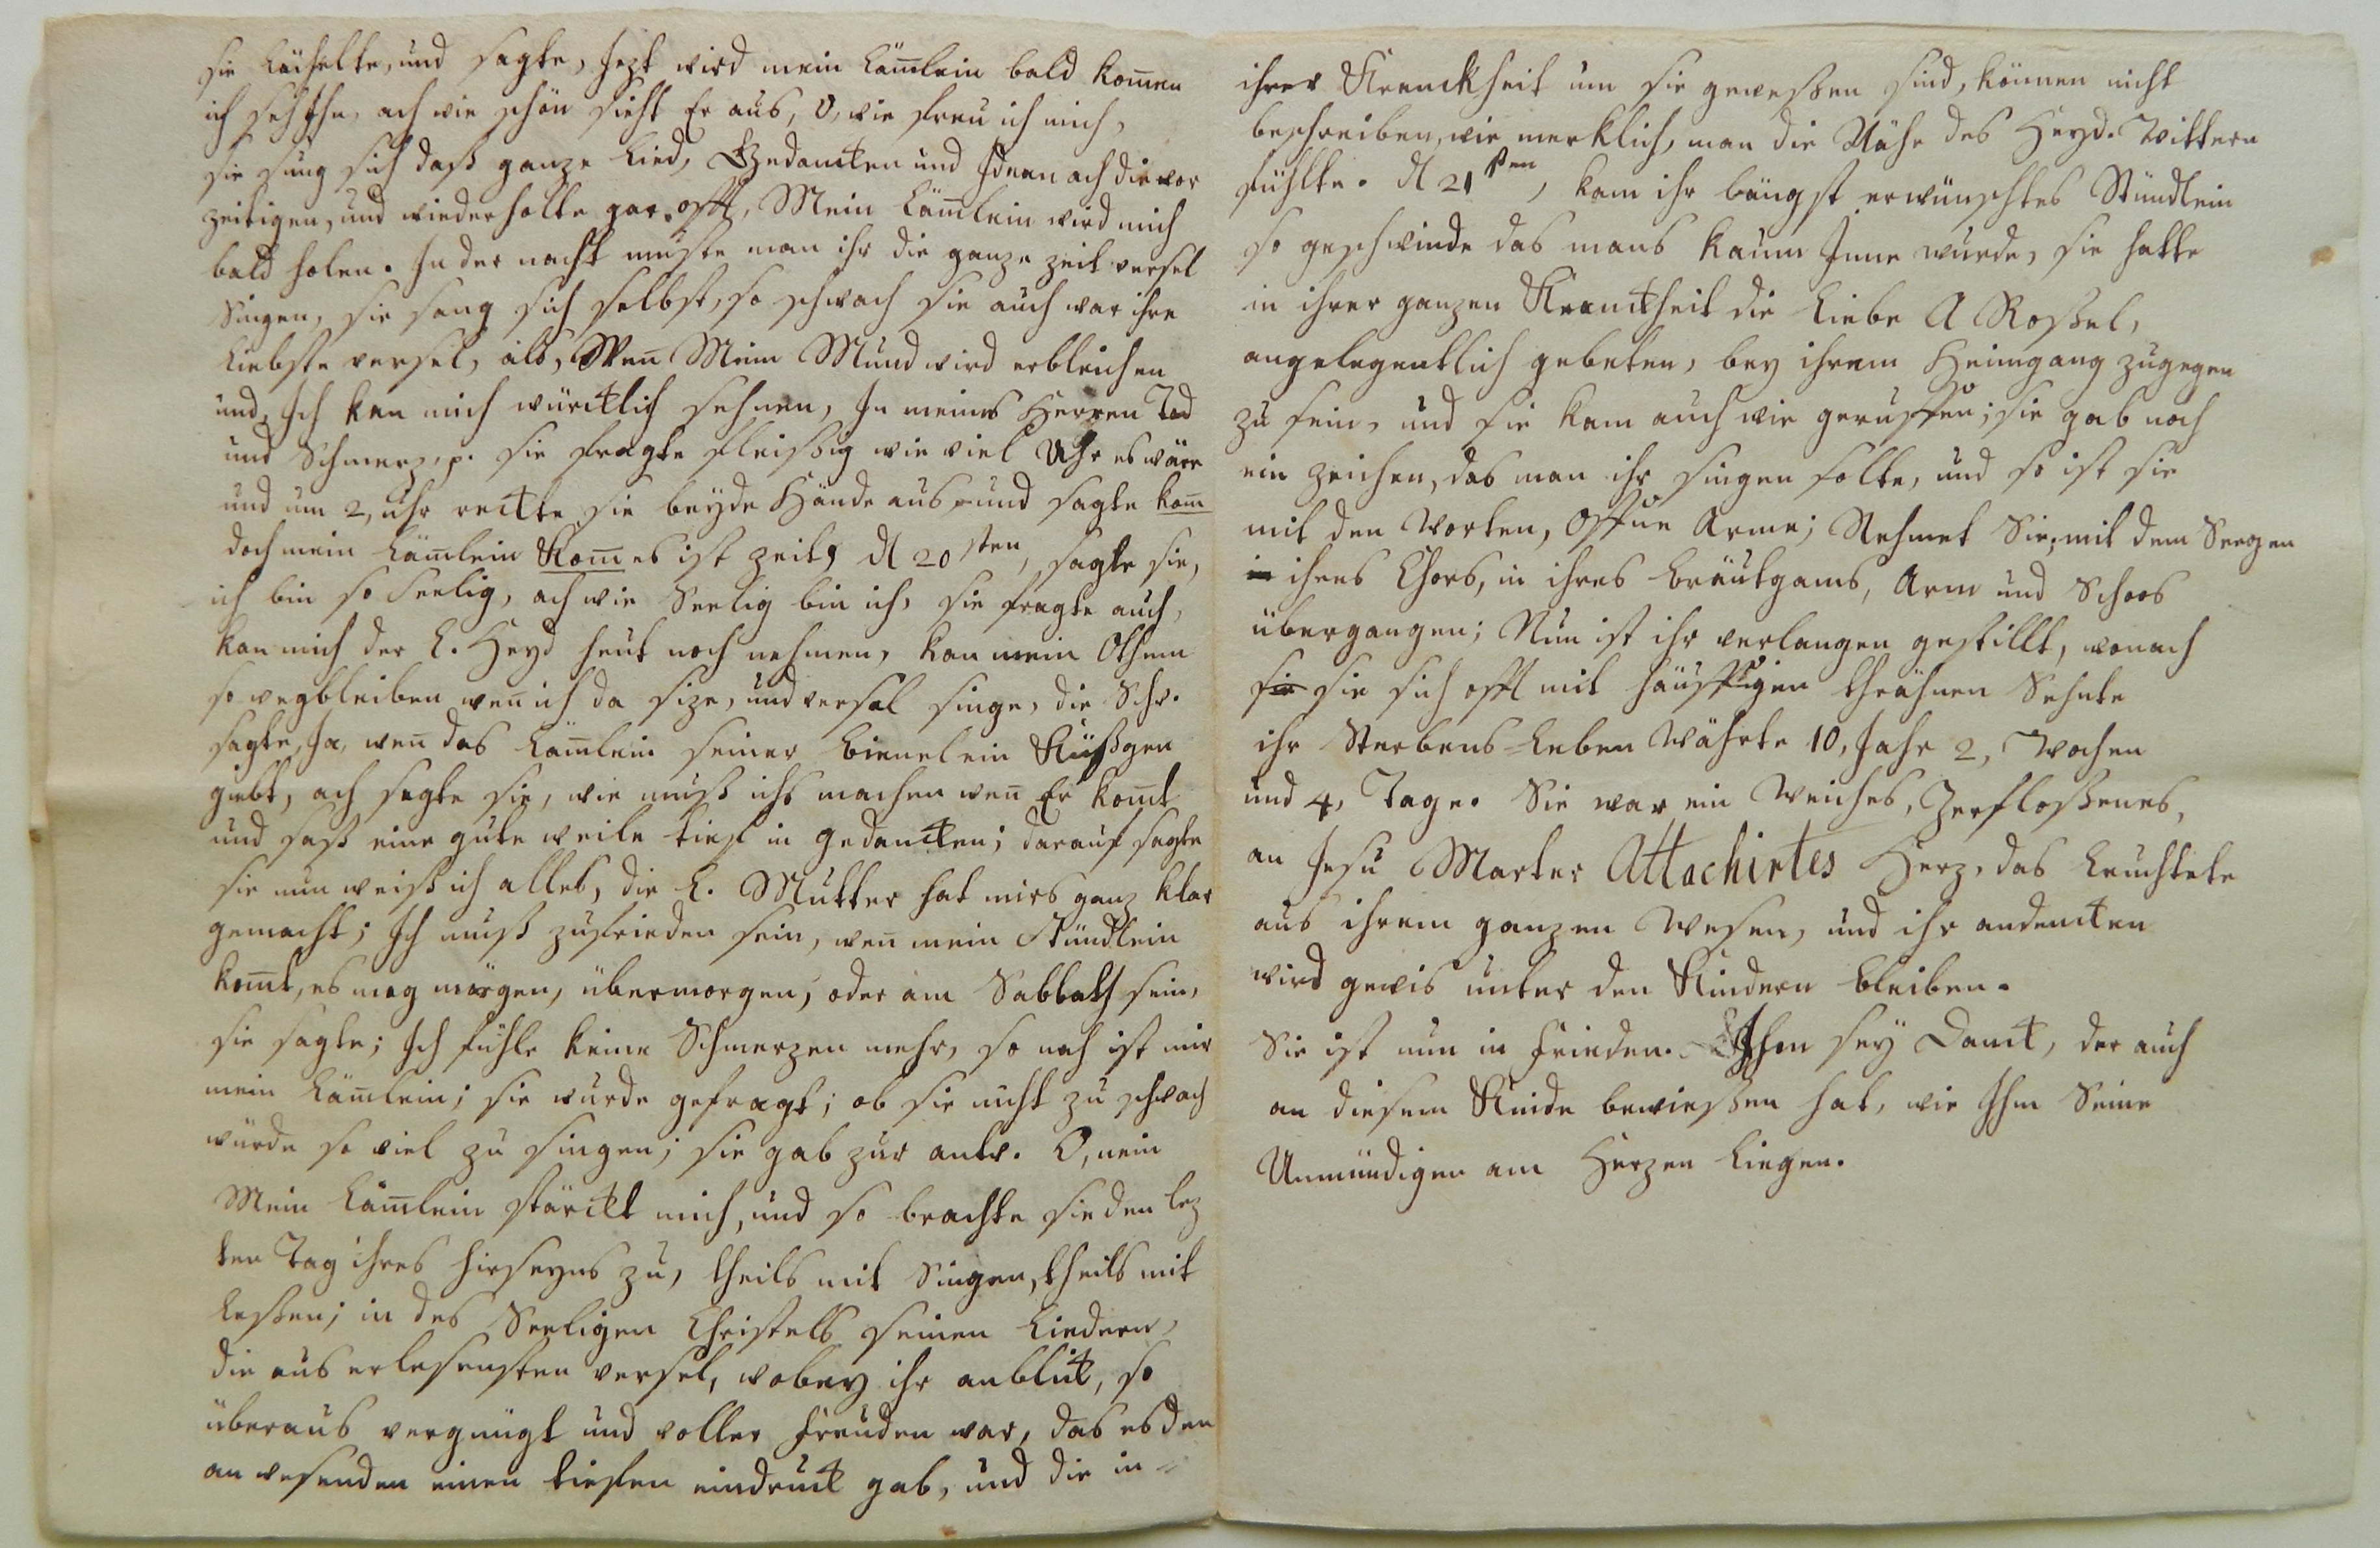 sie lächelte, und sagte, Jezt wird mein Läm̄lein bald kom̄en
ich seh Ihn, ach wie schön sieht Er aus, O, wie freu ich mich,
sie sung sich daß ganze Lied, Gedancken und Ideen ach die vor
zeitigen, und wiederholte gar offt, Mein Läm̄lein wird mich
bald holen. In der nacht muste man ihr die ganze zeit versel
Singen, sie sang sich selbst, so schwach sie auch war ihre
Liebste versel, als, Wen̄ Mein Mund wird erbleichen
und, Ich kan mich würcklich sehnen, In meines Herren Tod
und Schmerz, p. sie fragte fleißig wie viel Uhr es wäre
und um 2, uhr reckte sie beyde Hände aus und sagte kom̄
doch mein Läm̄lein Kom̄ es ist zeit, d 20sten, sagte sie,
ich bin so Seelig, ach wie Seelig bin ich, sie fragte auch,
kan mich der l. Heyd heut noch nehmen, kan mein Othem
so wegbleiben wen̄ ich da size, und versel singe, die Schw.
sagte, Ja, wen̄ das Läm̄lein seiner Bienelein Küßgen
giebt, ach sagte sie, wie muß ichs machen wen̄ Er kom̄t
und saß eine gute weile tief in gedancken; darauf sagte
sie nun weiß ich alles, die l. Mutter hat mirs ganz klar
gemacht; Ich muß zufrieden sein, wen̄ mein Stündlein
kom̄t, es mag morgen, übermorgen, oder am Sabbath sein,
sie sagte; Ich fühle keine Schmerzen mehr, so nah ist mir
mein Läm̄lein; sie wurde gefragt; ob sie nicht zu schwach
würde so viel zu singen; sie gab zur antw. O, nein
Mein Läm̄lein stärckt mich, und so brachte sie den lez
ten Tag ihres hirseyns zu, theils mit Singen, theils mit
Leßen; in des Seeligen Christels seinen Liedern,
die aus erlesensten versel, wobey ihr anblick, so
überaus vergnügt und voller freuden war, das es den
anwesenden einen tiefen eindruck gab, und die in
ihrer Kranckheit um sie geweßen sind, können nicht
beschreiben, wie merklich, man die Nähe des Heyd. Vittern
fühlte. d 21sten, kam ihr längst erwünschtes Stündlein
so geschwinde das mans kaum Inne wurde, sie hatte
in ihrer ganzen Kranckheit die Liebe A Roßel,
angelegentlich gebeten, bey ihrem Heimgang zugegen
zu sein, und sie kam auch wie geruffen; sie gab noch
ein zeichen, das man ihr singen solte, und so ist sie
mit den Worten, Offne Arme; Nehmet Sie, mit dem Seegen
ihres Chors, in ihres Bräutgams, Arm und Schoos
übergangen; Nun ist ihr verlangen gestillt, wonach
sie sich offt mit häuffigen thränen Sehnte
ihr Sterbens Leben Währte 10, Jahr 2, Wochen
und 4, Tage. Sie war ein Weiches, Zerfloßenes,
an Jesu Marter Attachirtes Herz, das Leuchtete
aus ihrem ganzen Wesen, und ihr andencken
wird gewis unter den Kindern bleiben.
Sie ist nun in frieden. Ihm sey Danck, der auch
an diesem Kinde bewießen hat, wie Ihm Seine
Unmündigen am Herzen Liegen.